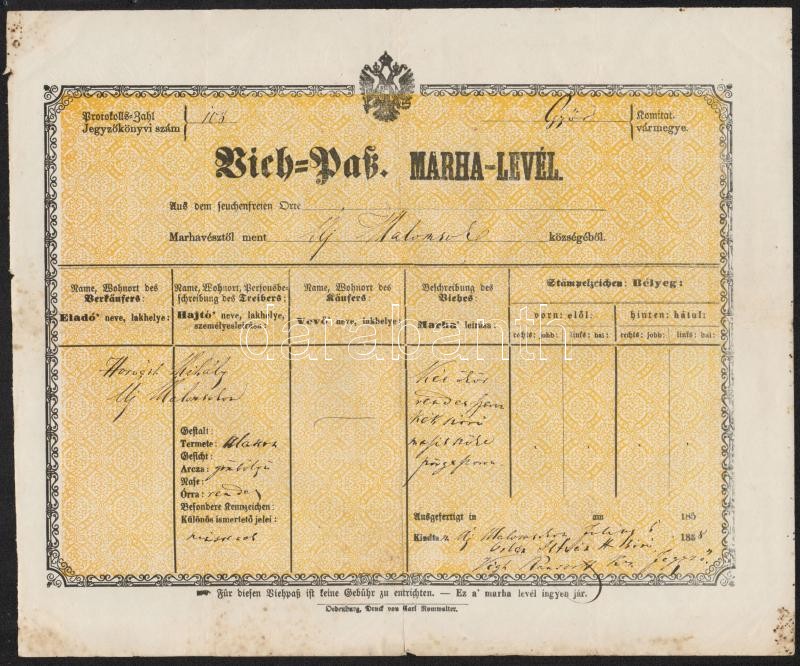 Protokolls-Zahl
Jegyzőkönyvi szám
103
Győr
Komitat.
vármegye.
Vieh=Paß. MARHA-LEVÉL.
Aus dem seuchenfreien Orte
Marhavésztől ment Uj Malomsok községéből.
Name, Wohnort des
Verkäufers:
Eladó' neve, lakhelye:
Name, Wohnort, Personsbe-
schreibung des Treibers:
Hajtó' neve, lakhelye,
személyesleirása:
Name, Wohnort des
Käufers
Vevő' neve, lakhelye:
Beschreibung des
Viehes
Marha' leirása:
Stämpelzeichen: Bélyeg:
vorn: elől:
hinten: hátul:
rechts: jobb:
links: bal:
rechts: jobb:
links: bal:
Mihály
Uj Malomsok
Gestalt:
Termete: alacson
Gesicht:
Arcza: gömbölyü
Nase:
Orra: rendes
Besondere Kennzeichen:
Különös ismertető jelei:
nincsenek
Két ökör
Ausgefertigt in am 185
Kiadta Uj Malomsok 1858
István
Für diesen Viehpaß ist keine Gebühr zu entrichten. — Ez a' marha levél ingyen jár.
Oedenburg, Druck von Carl Romwalter.
darabanth